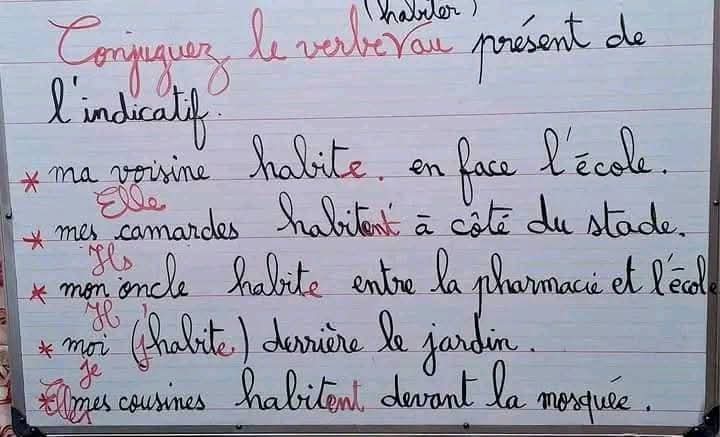 (habiter)
Conjuguez le verbe au présent de
l'indicatif.
* ma voisine habite. en face l'école.
Elle
* mes camardes habitent à côté du stade.
Ils
* mon oncle habite entre la pharmacie et l'école
Il
* moi (j'habite) derrière le jardin.
Je
* Elles mes cousines habitent devant la mosquée.